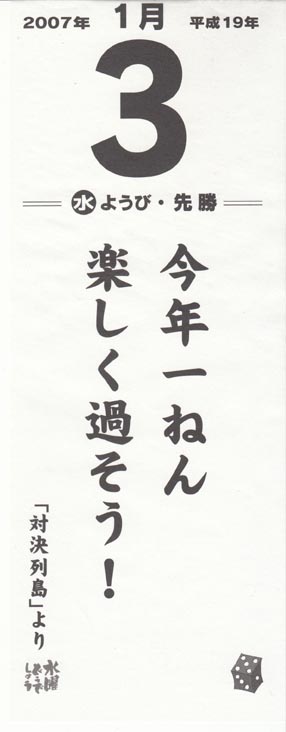 2007年 1月 平成19年
3
水 ようび・先勝
今年一ねん
楽しく過そう！
「対決列島」より
水曜
どうで
しょう